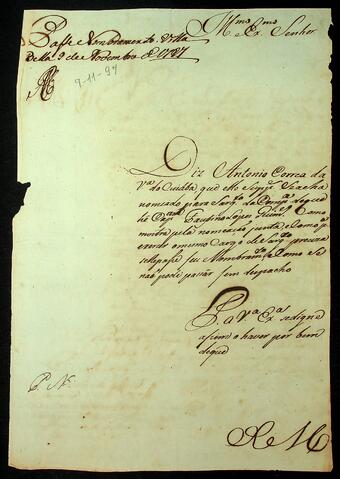 Passe Nombramento. Villa
Bella 9 de Novembro de 1787
Illmo Exmo Senhor
9-11-97
Diz Antonio Correa da
Va do Cuiabá que elle Suppe Se acha
nomeado para Sargto da Compa de que
hé Capam Faustino Lopes como
mostra pela nomeação junta e como
o mesmo Cargo de Sargto precisa
se lhe passe seu Nombramto e como Se
não pode passar sem despacho
P. a Va Exa se digne
assim o haver por bem
de que
P. N.
E R M